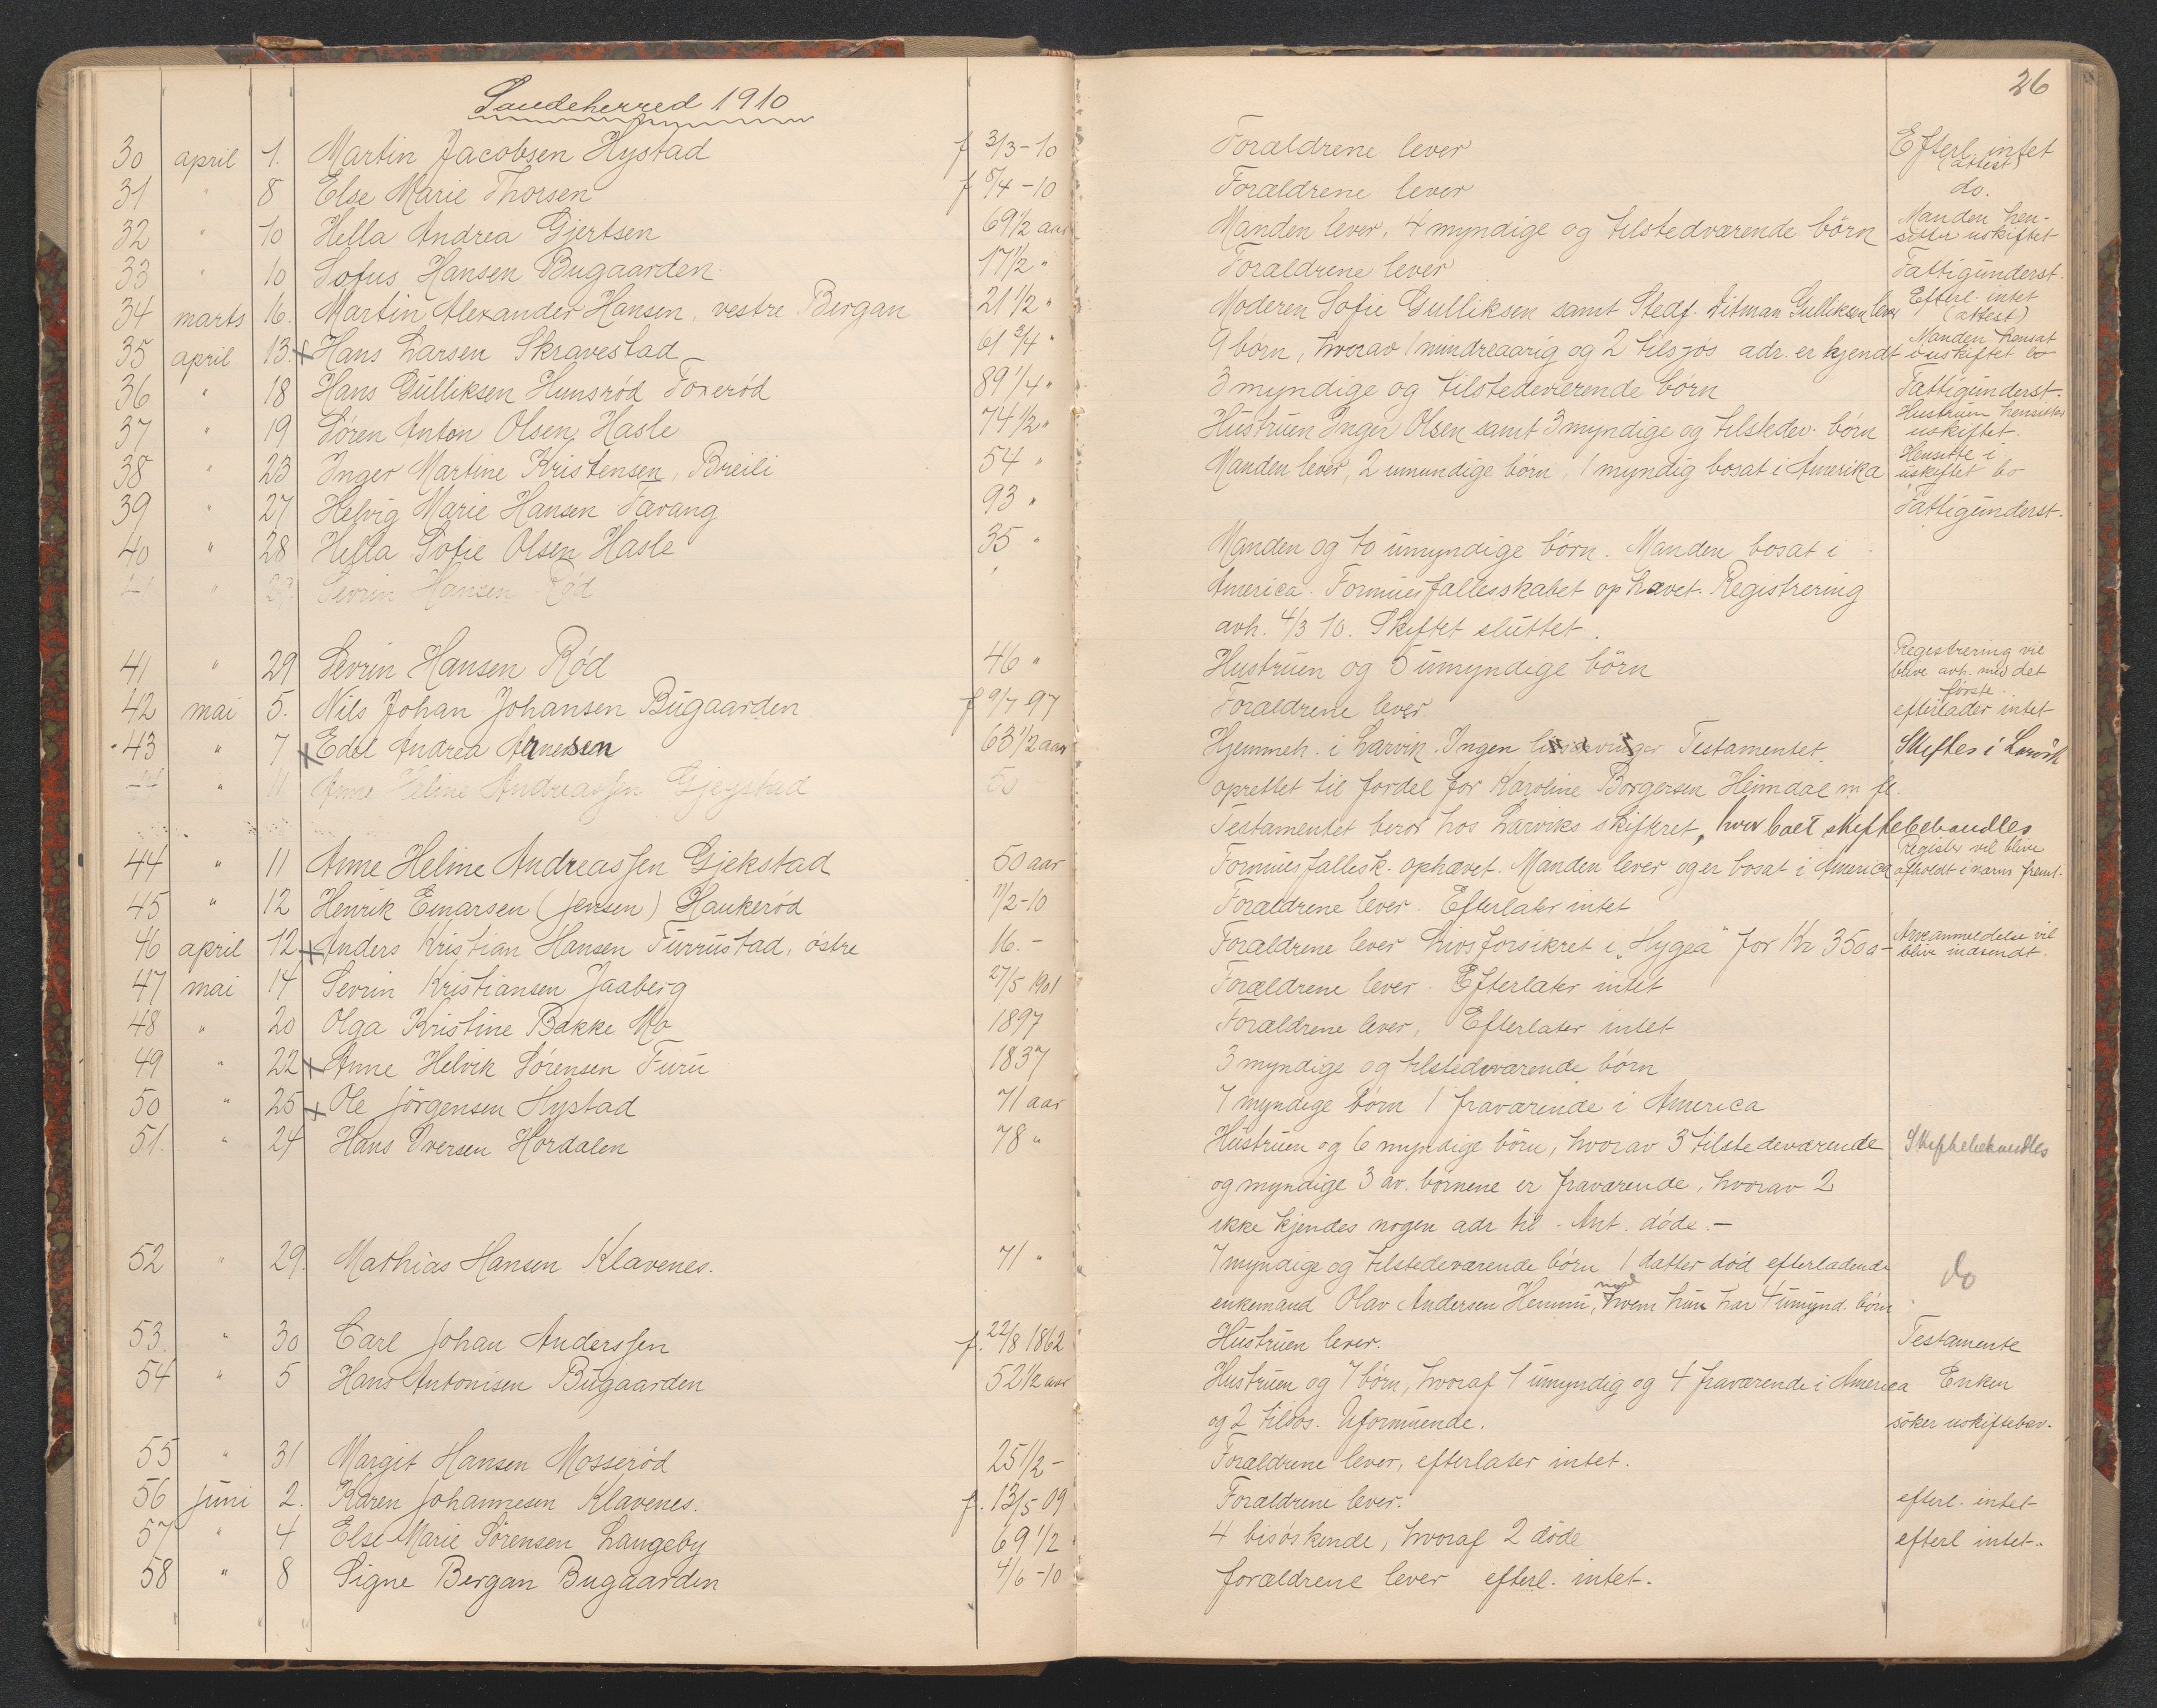 Sandeherred 1910
26
30 april 1. Martin Jacobsen Hystad f 3/3-10 Forældrene lever Efterl. intet (attest)
31 " 8 Else Marie Thorsen f 5/4-10 Forældrene lever do.
32 " 10 Hella Andrea Gjertsen 69 1/2 aar Manden lever, 4 myndige og tilstedværende børn Manden hensitter uskiftet
33 " 10 Sofus Hansen Bugaarden 17 1/2 " Forældrene lever Fattigunderst.
34 marts 16. Martin Alexander Hansen, vestre Bergan 21 1/2 " Moderen Sofie Gulliksen samt Stedf. Ditman Gulliksen lever Efterl. intet (attest)
35 april 13. x Hans Larsen Skravestad 61 3/4 " 9 børn, hvorav 1 mindreaarig og 2 tilsjøs adr. er kjendt Manden hensat i uskiftet bo
36 " 18 Hans Gulliksen Hunsrød Foxerød 89 1/4 " 3 myndige og tilstedeværende børn Fattigunderst.
37 " 19 Søren Anton Olsen, Hasle 74 1/2 " Hustruen Inger Olsen samt 3 myndige og tilstedev. børn Hustruen hensitter uskiftet.
38 " 23 Inger Martine Kristensen, Breili 54 " Manden lever, 2 umundige børn, 1 myndig bosat i Amerika Hensitte i uskiftet bo
39 " 27 Helvig Marie Hansen Tavang 93 " Fattigunderst.
40 " 28 Hella Sofie Olsen Hasle 35 " Manden og to umyndige børn. Manden bosat i
" Sevrin Hansen Rød America. Formuesfællesskabet ophævet. Registrering
avh. 4/3 10. Skiftet sluttet.
41 " 29 Sevrin Hansen Rød 46 " Hustruen og 5 umyndige børn Registrering vil blive avh. med det første.
42 mai 5. Nils Johan Johansen Bugaarden f 9/7 97 Forældrene lever efterlader intet
43 " 7 x Edel Andrea Arnesen 63 1/2 aar Hjemmeh. i Larvik. Ingen livsarvinger Testamentet Skiftes i Larvik
" 11 Anne Heline Andreassen Gjegstad 50 oprettet til fordel for Karoline Borgersen Heimdal m fl.
Testamentet beror hos Larviks skifteret, hvor boet skiftebehandles
44 " 11 Anne Heline Andreassen Gjekstad 50 aar Formuesfællesk. ophævet. Manden lever og er bosat i America register vil blive afholdt i nærm fremt.
45 " 12 Henrik Einarsen (Jensen) Haukerød 11/2-10 Forældrene lever. Efterlater intet
46 april 12 x Anders Kristian Hansen Furustad, østre 16. - Forældrene lever Livsforsikret i "Hygea" for Kr 350 a- Arveanmeldelse vil blive indsendt.
47 mai 14 Sevrin Kristiansen Jaaberg 27/5 1901 Forældrene lever. Efterlater intet
48 " 20 Olga Kristine Bakke Mo 1897 Forældrene lever, Efterlater intet
49 " 22 x Anne Helvik Sørensen Furu 1837 3 myndige og tilstedeværende børn
50 " 25 x Ole Jørgensen Hystad 71 aar 7 myndige børn 1 fraværende i America
51. " 24 Hans Iversen Hordalen 78 " Hustruen og 6 myndige børn, hvorav 3 tilstedeværende Skiftebehandles
og myndige 3 av. børnene er fraværende, hvorav 2
ikke kjendes nogen adr til. Ant. døde.-
52 " 29. Mathias Hansen Klavenes. 71 " 7 myndige og tilstedeværende børn 1 datter død efterladende do
enkemand Olav Andersen Hemmi, med hvem hun har 4 umynd. børn
53. " 30 Carl Johan Anderssen f. 22/8 1862 Hustruen lever. Testamente
54 " 5 Hans Antonisen Bugaarden 52 1/2 aar Hustruen og 7 børn, hvoraf 1 umyndig og 4 fraværende i America Enken
og 2 tilsøs. Uformuende. søker uskiftebev.
55 " 31 Margit Hansen Mosserød 25 1/2 - Forældrene lever, efterlater intet.
56 juni 2. Karen Johannesen Klavenes. f. 13/5 09 Forældrene lever. efterl. intet
57 " 4 Else Marie Sørensen Langeby 69 1/2 4 bisøskende, hvoraf 2 døde efterl intet.
58 " 8 Signe Bergan Bugaarden 4/6-10 forældrene lever efterl. intet.